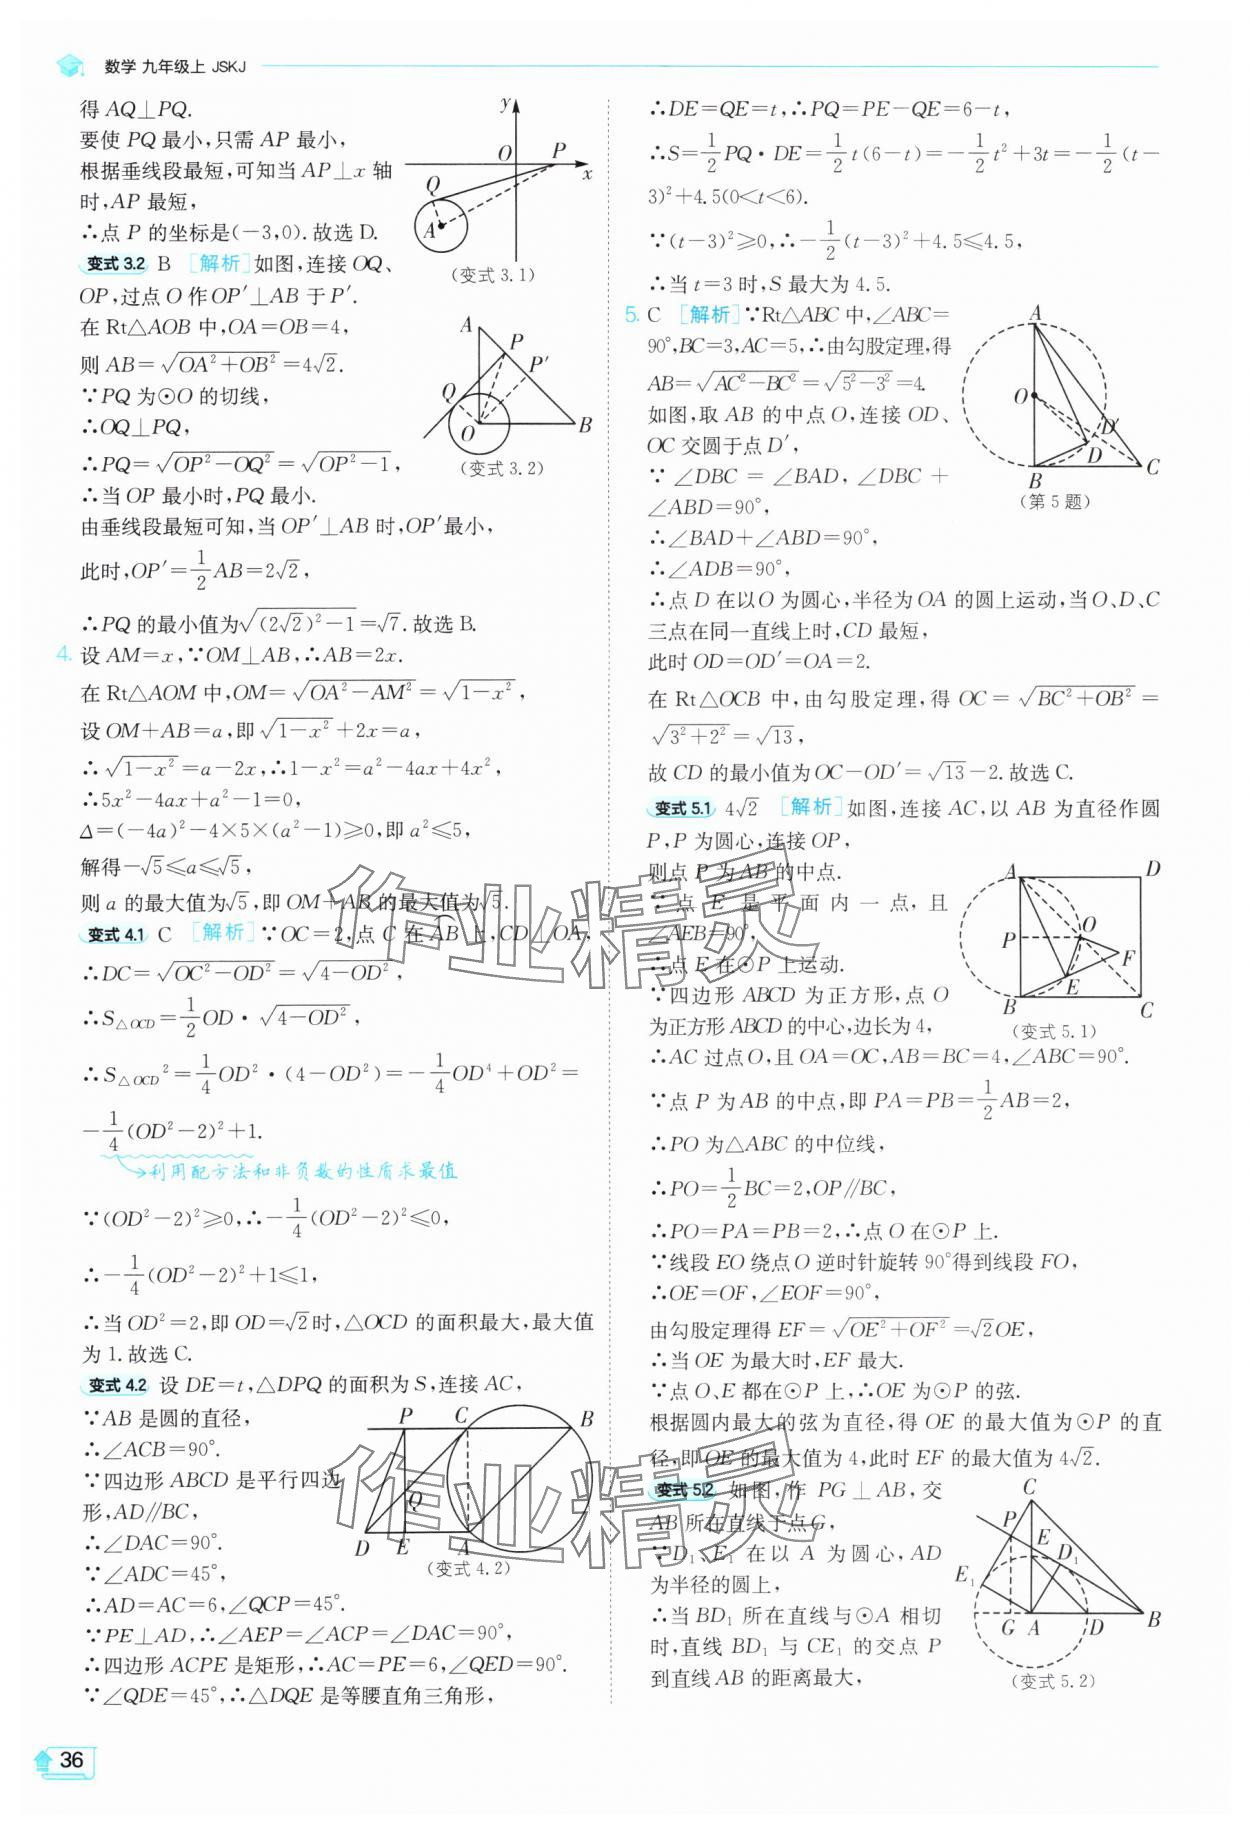 数学 九年级上 JSKJ
得 AQ⊥PQ.
要使 PQ 最小,只需 AP 最小,
根据垂线段最短,可知当 AP⊥x 轴
时,AP 最短,
∴点 P 的坐标是(-3,0).故选 D.
y
O
P
x
Q
A
(变式 3.1)
变式 3.2 B [解析]如图,连接 OQ、
OP,过点 O 作 OP′⊥AB 于 P′.
在 Rt△AOB 中,OA=OB=4,
则 AB=√(OA²+OB²)=4√2.
∵PQ 为⊙O 的切线,
∴OQ⊥PQ,
∴PQ=√(OP²-OQ²)=√(OP²-1),
∴当 OP 最小时,PQ 最小.
由垂线段最短可知,当 OP′⊥AB 时,OP′最小,
此时,OP′=1/2AB=2√2,
∴PQ 的最小值为√((2√2)²-1)=√7.故选 B.
A
P
P′
Q
O
B
(变式 3.2)
4. 设 AM=x,∵OM⊥AB,∴AB=2x.
在 Rt△AOM 中,OM=√(OA²-AM²)=√(1-x²),
设 OM+AB=a,即√(1-x²)+2x=a,
∴√(1-x²)=a-2x,∴1-x²=a²-4ax+4x²,
∴5x²-4ax+a²-1=0,
Δ=(-4a)²-4×5×(a²-1)≥0,即 a²≤5,
解得-√5≤a≤√5,
则 a 的最大值为√5,即 OM+AB 的最大值为√5.
变式 4.1 C [解析]∵OC=2,点 C 在AB⌒上,CD⊥OA,
∴DC=√(OC²-OD²)=√(4-OD²),
∴S△OCD=1/2OD·√(4-OD²),
∴S△OCD²=1/4OD²·(4-OD²)=-1/4OD⁴+OD²=
-1/4(OD²-2)²+1.
利用配方法和非负数的性质求最值
∵(OD²-2)²≥0,∴-1/4(OD²-2)²≤0,
∴-1/4(OD²-2)²+1≤1,
∴当 OD²=2,即 OD=√2时,△OCD 的面积最大,最大值
为 1.故选 C.
变式 4.2 设 DE=t,△DPQ 的面积为 S,连接 AC,
∵AB 是圆的直径,
∴∠ACB=90°.
∵四边形 ABCD 是平行四边
形,AD∥BC,
∴∠DAC=90°.
∵∠ADC=45°,
∴AD=AC=6,∠QCP=45°.
∵PE⊥AD,∴∠AEP=∠ACP=∠DAC=90°,
∴四边形 ACPE 是矩形,∴AC=PE=6,∠QED=90°.
∵∠QDE=45°,∴△DQE 是等腰直角三角形,
P
C
B
Q
D
E
A
(变式 4.2)
∴DE=QE=t,∴PQ=PE-QE=6-t,
∴S=1/2PQ·DE=1/2t(6-t)=-1/2t²+3t=-1/2(t-
3)²+4.5(0<t<6).
∵(t-3)²≥0,∴-1/2(t-3)²+4.5≤4.5,
∴当 t=3 时,S 最大为 4.5.
5. C [解析]∵Rt△ABC 中,∠ABC=
90°,BC=3,AC=5,∴由勾股定理,得
AB=√(AC²-BC²)=√(5²-3²)=4.
如图,取 AB 的中点 O,连接 OD、
OC 交圆于点 D′,
∵∠DBC=∠BAD,∠DBC+
∠ABD=90°,
∴∠BAD+∠ABD=90°,
∴∠ADB=90°,
∴点 D 在以 O 为圆心,半径为 OA 的圆上运动,当 O、D、C
三点在同一直线上时,CD 最短,
此时 OD=OD′=OA=2.
在 Rt△OCB 中,由勾股定理,得 OC=√(BC²+OB²)=
√(3²+2²)=√13,
故 CD 的最小值为 OC-OD′=√13-2.故选 C.
A
O
D′
D
B
C
(第 5 题)
变式 5.1 4√2 [解析]如图,连接 AC,以 AB 为直径作圆
P,P 为圆心,连接 OP,
则点 P 为 AB 的中点.
∵点 E 是平面内一点,且
∠AEB=90°,
∴点 E 在⊙P 上运动.
∵四边形 ABCD 为正方形,点 O
为正方形 ABCD 的中心,边长为 4,
∴AC 过点 O,且 OA=OC,AB=BC=4,∠ABC=90°.
∵点 P 为 AB 的中点,即 PA=PB=1/2AB=2,
∴PO 为△ABC 的中位线,
∴PO=1/2BC=2,OP∥BC,
∴PO=PA=PB=2,∴点 O 在⊙P 上.
∵线段 EO 绕点 O 逆时针旋转 90°得到线段 FO,
∴OE=OF,∠EOF=90°,
由勾股定理得 EF=√(OE²+OF²)=√2OE,
∴当 OE 为最大时,EF 最大.
∵点 O、E 都在⊙P 上,∴OE 为⊙P 的弦.
根据圆内最大的弦为直径,得 OE 的最大值为⊙P 的直
径,即 OE 的最大值为 4,此时 EF 的最大值为 4√2.
A
D
O
P
F
E
B
C
(变式 5.1)
变式 5.2 如图,作 PG⊥AB,交
AB 所在直线于点 G,
∵D₁、E₁ 在以 A 为圆心,AD
为半径的圆上,
∴当 BD₁ 所在直线与⊙A 相切
时,直线 BD₁ 与 CE₁ 的交点 P
到直线 AB 的距离最大,
C
P
E
D₁
E₁
G
A
D
B
(变式 5.2)
作业精灵
作业精灵
36